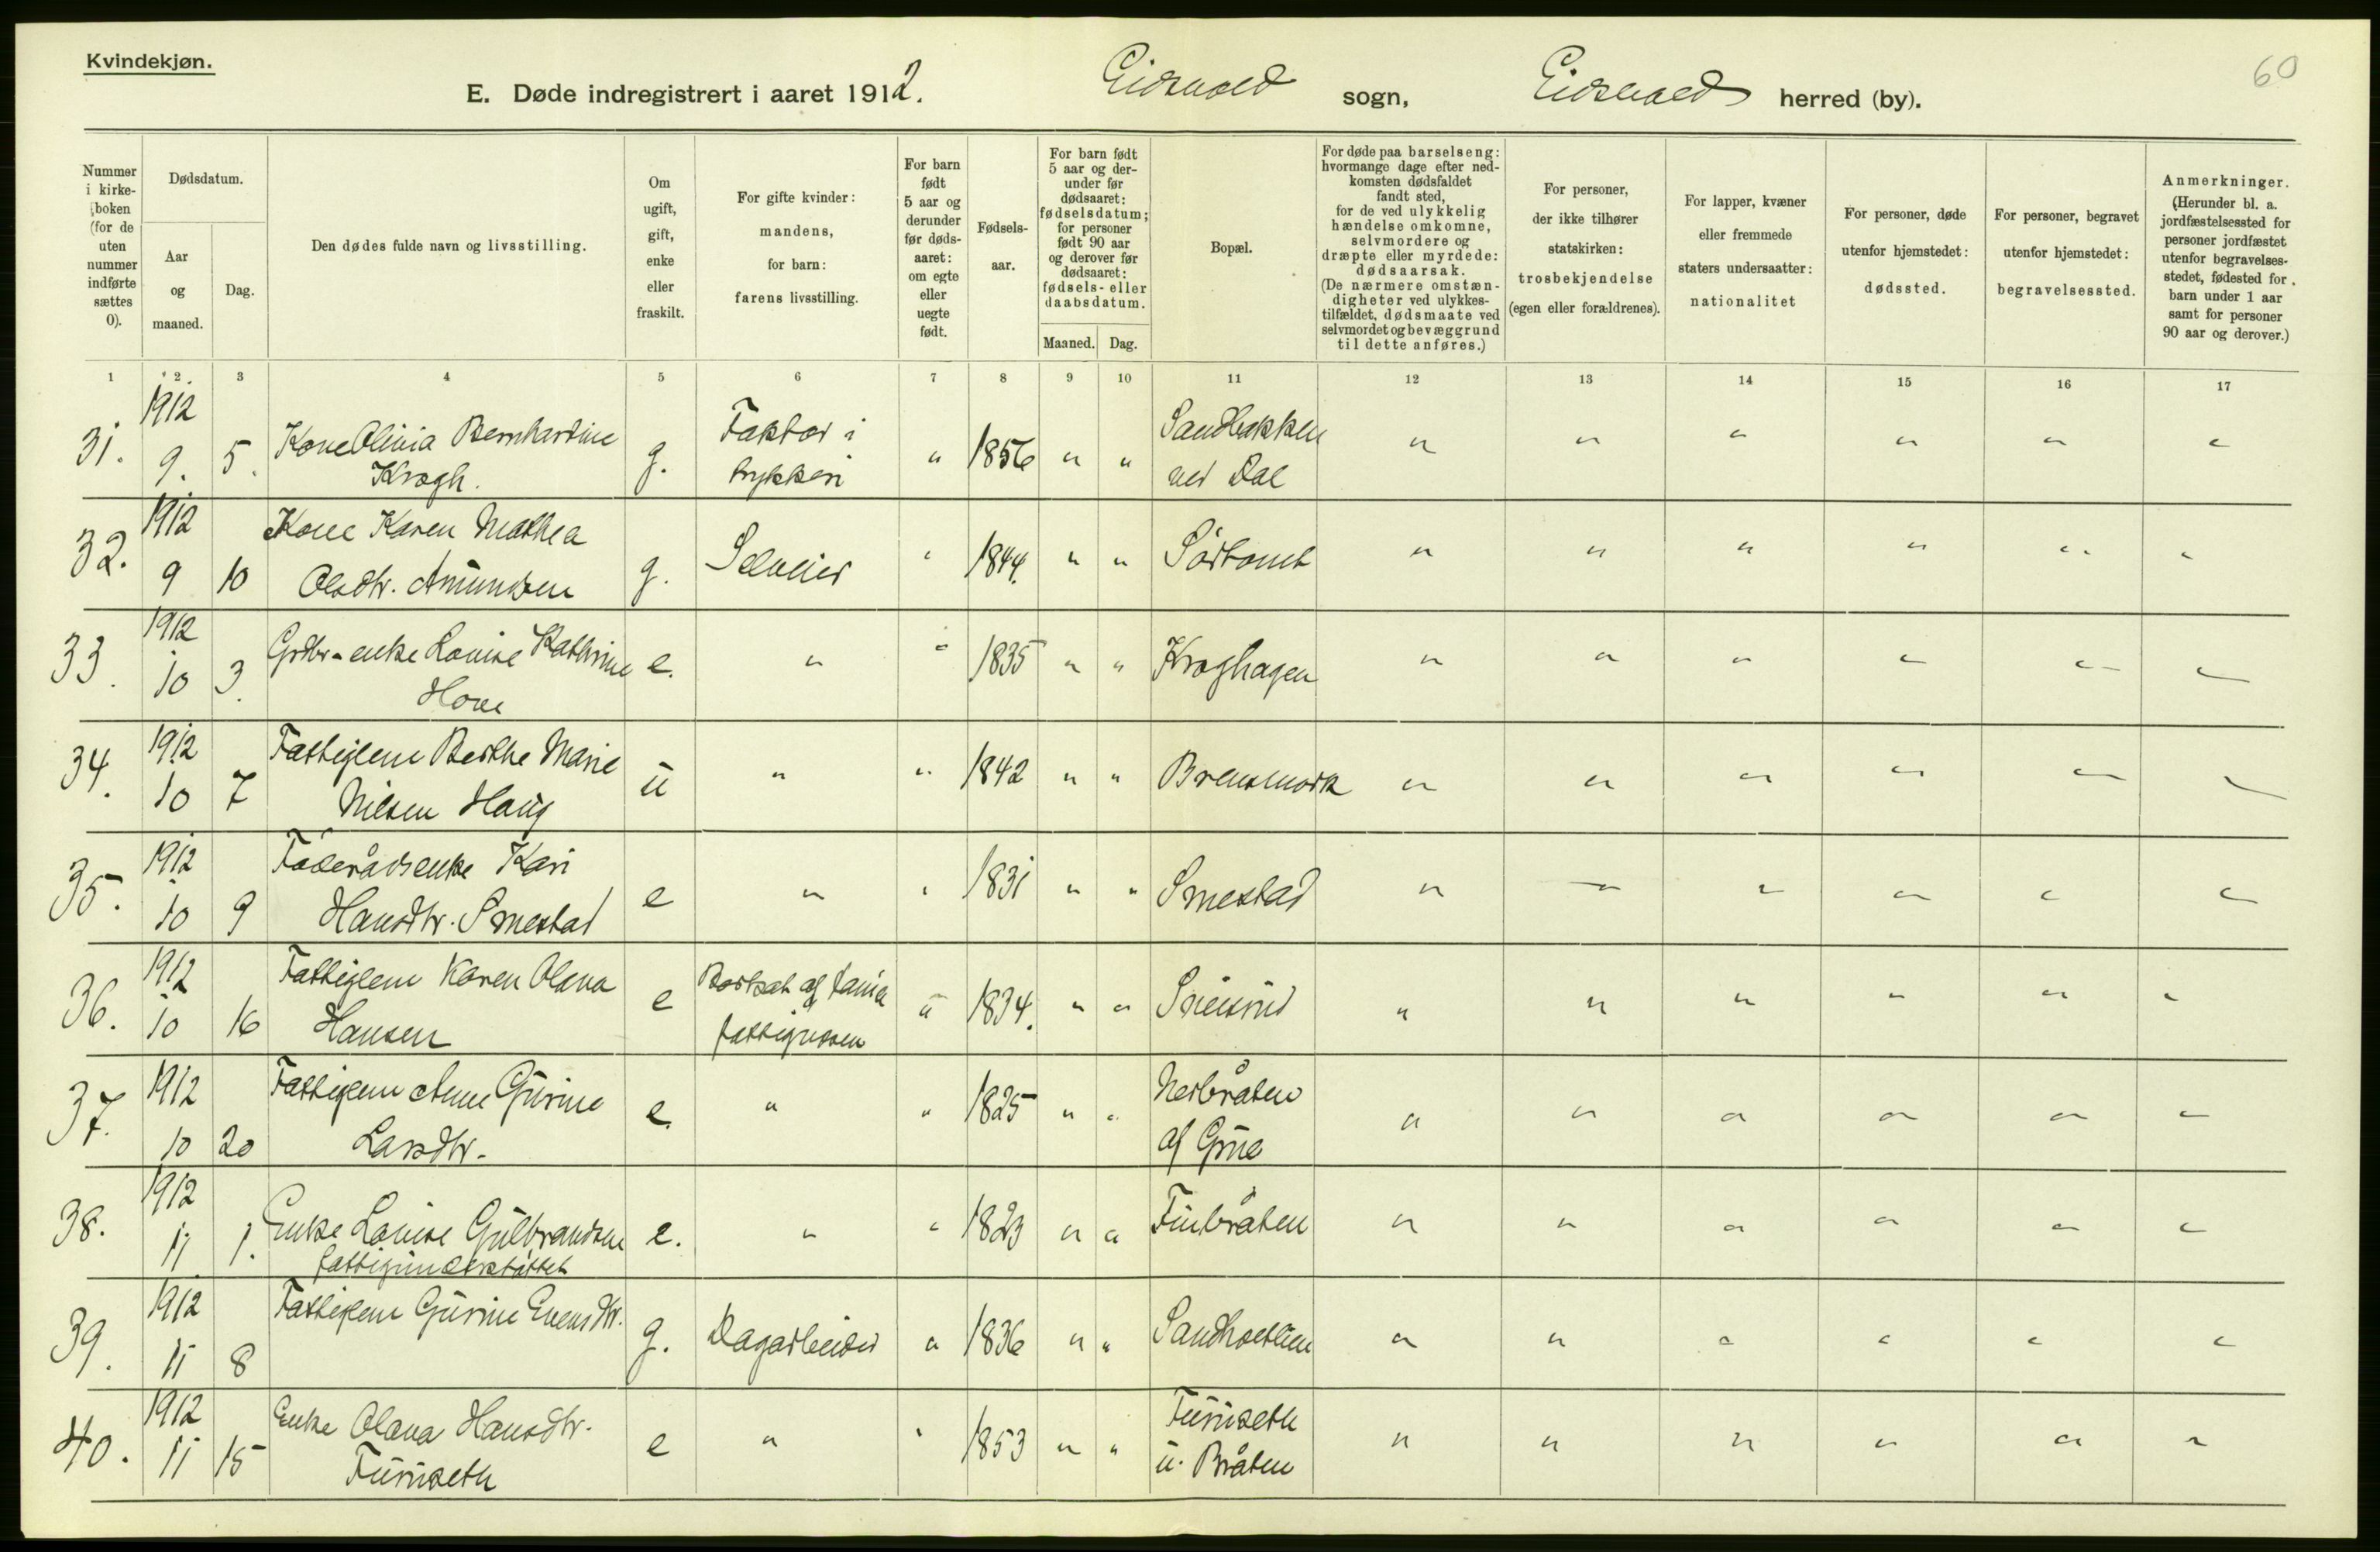 Kvindekjøn.
60
E. Døde indregistrert i aaret 1912. Eidsvold sogn, Eidsvold herred (by).
Nummer i kirkeboken (for de uten nummer indførte sættes 0).
Dødsdatum.
Aar og maaned.
Dag.
Den dødes fulde navn og livsstilling.
Om ugift, gift, enke eller fraskilt.
For gifte kvinder: mandens, for barn: farens livsstilling.
For barn født 5 aar og derunder før dødsaaret: om egte eller uegte født.
Fødselsaar.
For barn født 5 aar og derunder før dødsaaret: fødselsdatum; for personer født 90 aar og derover før dødsaaret: fødsels- eller daabsdatum.
Maaned. Dag.
Bopæl.
For døde paa barselseng: hvormange dage efter nedkomsten dødsfaldet fandt sted, for de ved ulykkelig hændelse omkomne, selvmordere og dræpte eller myrdede: dødsaarsak. (De nærmere omstændigheter ved ulykkestilfældet, dødsmaate ved selvmordet og bevæggrund til dette anføres.)
For personer, der ikke tilhører statskirken: trosbekjendelse (egen eller forældrenes).
For lapper, kvæner eller fremmede staters undersaatter: nationalitet
For personer, døde utenfor hjemstedet: dødssted.
For personer, begravet utenfor hjemstedet: begravelsessted.
Anmerkninger. (Herunder bl. a. jordfæstelsessted for personer jordfæstet utenfor begravelsesstedet, fødested for barn under 1 aar samt for personer 90 aar og derover.)
1 2 3 4 5 6 7 8 9 10 11 12 13 14 15 16 17
31. 1912 9. 5. Kone Olivia Bernhardine Krogh. g. Faktor i trykkeri " 1856 " " Sandbakken ved Dal " " " " " "
32. 1912 9 10 Kone Karen Mathea Olsdtr. Amundsen g. Selveier " 1844. " " Sörtomt " " " " " "
33. 1912 10 3. Grdbr-enke Louise Kathrine Hove e. " " 1835 " " Kroghagen " " " " " "
34. 1912 10 7 Fattiglem Berthe Marie Nilsen Haug u " " 1842 " " " " " " " "
35. 1912 10 9 Föderådsenke Kari Hansdtr. Smestad e " " 1831 " " Smestad " " " " " "
36. 1912 10 16 Fattiglem Karen Olava Hansen e Bortsat af fattigvesen " 1834. " " " " " " " "
37. 1912 10 20 Fattiglem Anne Gurine Larsdtr. e. " " 1825 " " Nerbråten af Grue " " " " " "
38. 1912 11 1. Enke Louise Gulbrandsen fattigunderstöttet e. " " 1823 " " Finbråten " " " " " "
39. 1912 11 8 Fattiglem Gurine Evensdtr. g. Dagarbeider " 1836 " " " " " " " "
40. 1912 11 15 Enke Olava Hansdtr. Furuseth e " " 1853 " " Furuseth u. Bråten " " " " " "